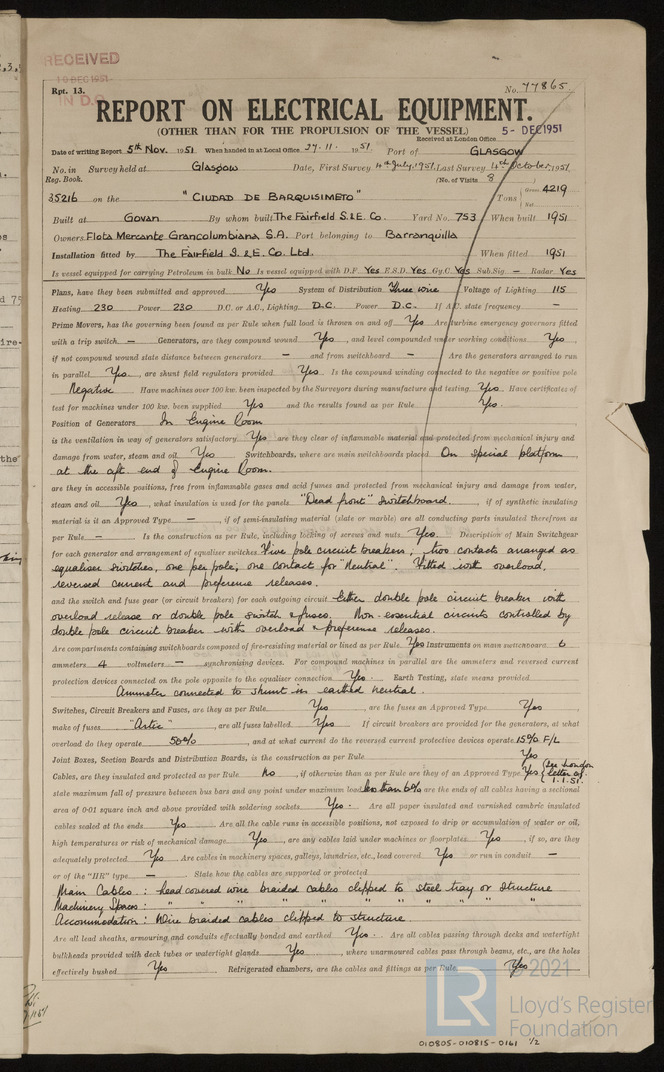 RECEIVED
10 DEC 1951
IN D.O.
Rpt. 13. No. 77865
REPORT ON ELECTRICAL EQUIPMENT.
(OTHER THAN FOR THE PROPULSION OF THE VESSEL)
Received at London Office 5 - DEC 1951
Date of writing Report 5th Nov. 1951. When handed in at Local Office 27.11. 1951. Port of GLASGOW
No. in Survey held at Glasgow Date, First Survey 4th July, 1951. Last Survey 4th October, 1951
Reg. Book. (No. of Visits 8
35216 on the "CIUDAD DE BARQUISIMETO" Tons { Gross 4219
Net
Built at Govan By whom built The Fairfield S.&E. Co. Yard No. 753 When built 1951
Owners Flota Mercante Grancolumbiana S.A. Port belonging to Barranquilla
Installation fitted by The Fairfield S. & E. Co. Ltd. When fitted 1951
Is vessel equipped for carrying Petroleum in bulk No Is vessel equipped with D.F. Yes E.S.D. Yes Gy.C. Yes Sub.Sig. — Radar Yes
Plans, have they been submitted and approved Yes System of Distribution Three wire Voltage of Lighting 115
Heating 230 Power 230 D.C. or A.C., Lighting D.C. Power D.C. If A.C. state frequency —
Prime Movers, has the governing been found as per Rule when full load is thrown on and off Yes Are turbine emergency governors fitted
with a trip switch — Generators, are they compound wound Yes, and level compounded under working conditions Yes,
if not compound wound state distance between generators — and from switchboard — Are the generators arranged to run
in parallel Yes, are shunt field regulators provided Yes Is the compound winding connected to the negative or positive pole
Negative Have machines over 100 kw. been inspected by the Surveyors during manufacture and testing Yes Have certificates of
test for machines under 100 kw. been supplied Yes and the results found as per Rule Yes.
Position of Generators In Engine Room
is the ventilation in way of generators satisfactory Yes are they clear of inflammable material and protected from mechanical injury and
damage from water, steam and oil Yes Switchboards, where are main switchboards placed On special platform
at the aft. end of Engine Room.
are they in accessible positions, free from inflammable gases and acid fumes and protected from mechanical injury and damage from water,
steam and oil Yes, what insulation is used for the panels "Dead front" switchboard., if of synthetic insulating
material is it an Approved Type —, if of semi-insulating material (slate or marble) are all conducting parts insulated therefrom as
per Rule — Is the construction as per Rule, including locking of screws and nuts Yes. Description of Main Switchgear
for each generator and arrangement of equaliser switches Five pole circuit breakers, two contacts arranged as
equaliser switches, one per pole, one contact for "Neutral". Fitted with overload,
reversed current and preference releases.
and the switch and fuse gear (or circuit breakers) for each outgoing circuit Either double pole circuit breaker with
overload release or double pole switch & fuses. Non-essential circuits controlled by
double pole circuit breaker with overload & preference releases.
Are compartments containing switchboards composed of fire-resisting material or lined as per Rule Yes Instruments on main switchboard 6
ammeters 4 voltmeters — synchronising devices. For compound machines in parallel are the ammeters and reversed current
protection devices connected on the pole opposite to the equaliser connection Yes. Earth Testing, state means provided
Ammeter connected to shunt in earthed neutral.
Switches, Circuit Breakers and Fuses, are they as per Rule Yes, are the fuses an Approved Type Yes,
make of fuses "Artic", are all fuses labelled Yes If circuit breakers are provided for the generators, at what
overload do they operate 50%, and at what current do the reversed current protective devices operate 15% F/L
Joint Boxes, Section Boards and Distribution Boards, is the construction as per Rule Yes
Cables, are they insulated and protected as per Rule No, if otherwise than as per Rule are they of an Approved Type Yes { See London letter of 1.1.51.
state maximum fall of pressure between bus bars and any point under maximum load less than 6% are the ends of all cables having a sectional
area of 0·01 square inch and above provided with soldering sockets Yes. Are all paper insulated and varnished cambric insulated
cables sealed at the ends Yes Are all the cable runs in accessible positions, not exposed to drip or accumulation of water or oil,
high temperatures or risk of mechanical damage Yes, are any cables laid under machines or floorplates Yes, if so, are they
adequately protected Yes Are cables in machinery spaces, galleys, laundries, etc., lead covered Yes or run in conduit —
or of the "HR" type — State how the cables are supported or protected
Main Cables : lead covered wire braided cables clipped to steel tray or structure
Machinery Spaces : " " " " " " " " "
Accommodation : Wire braided cables clipped to structure.
Are all lead sheaths, armouring and conduits effectually bonded and earthed Yes. Are all cables passing through decks and watertight
bulkheads provided with deck tubes or watertight glands Yes, where unarmoured cables pass through beams, etc., are the holes
effectively bushed Yes Refrigerated chambers, are the cables and fittings as per Rule Yes
© 2021
LR Lloyd's Register
Foundation
010805-010815-0161 1/2